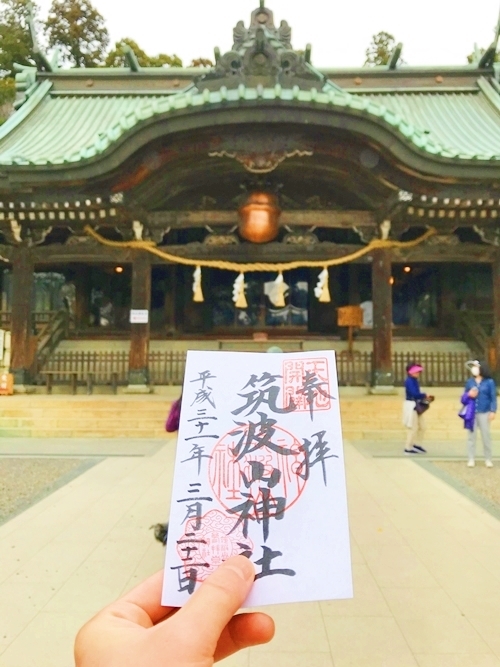 奉拝
筑波山神社
平成三十一年三月二十一日